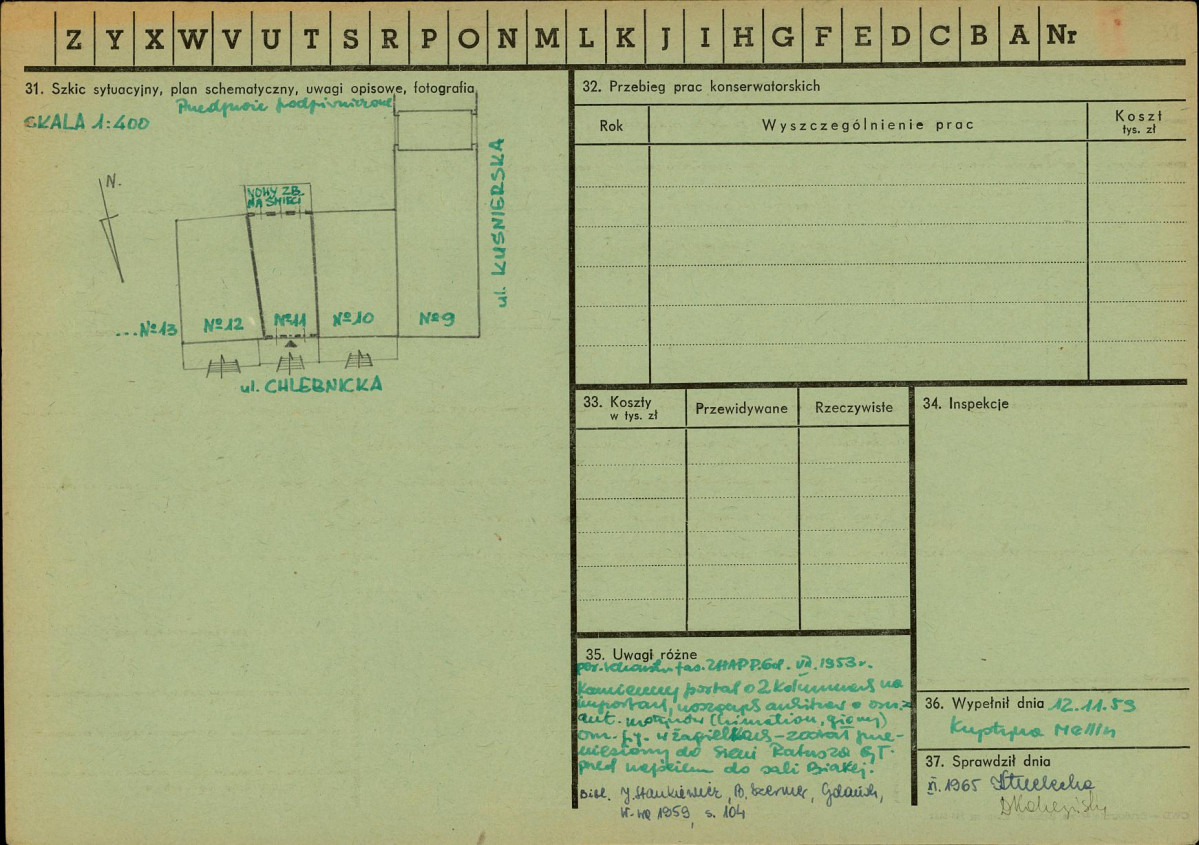 Z Y X W V U T S R P O N M L K J I H G F E D C B A Nr
31. Szkic sytuacyjny, plan schematyczny, uwagi opisowe, fotografia
Przedproże podpiwniczone
SKALA 1:400
N.
NOWY ZB.
NA ŚMIECI
ul. KUŚNIERSKA
...№13 №12 №11 №10 №9
ul. CHLEBNICKA
32. Przebieg prac konserwatorskich
Rok Wyszczególnienie prac Koszt
tys. zł
33. Koszty
w tys. zł
Przewidywane Rzeczywiste
34. Inspekcje
35. Uwagi różne
VII. 1953 r.
Kamienny portal o 2 kolumnach na
ant. motywów
– został prze-
niesiony do Sieni Ratusza Gł.
przed wejściem do sali Białej.
Bibl. J. Stankiewicz, B. Szermer, Gdańsk,
W-wa 1959, s. 104
36. Wypełnił dnia 12.11.59
Krystyna Mellin
37. Sprawdził dnia
1965